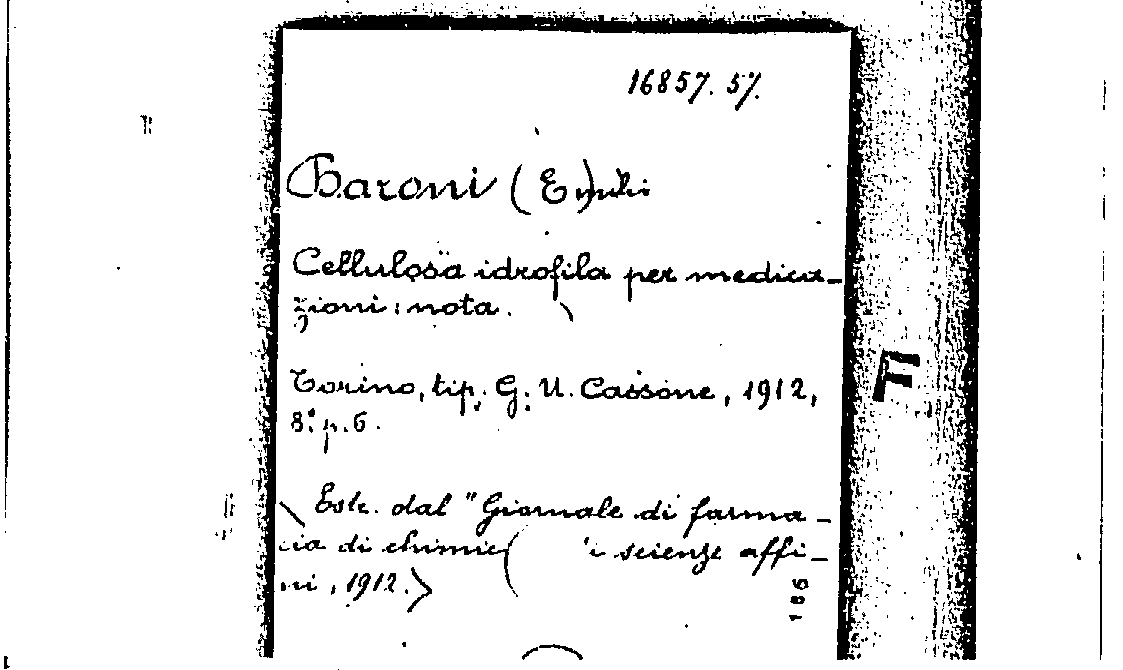 16857. 57.
Baroni (E)milio
Cellulosa idrofila per medica-
zioni: nota.
Torino, tip. G. U. Cassone, 1912,
8.° p. 6.
Estr. dal "Giornale di farma-
cia di chimic i scienze affi-
ni, 1912.>
F
186